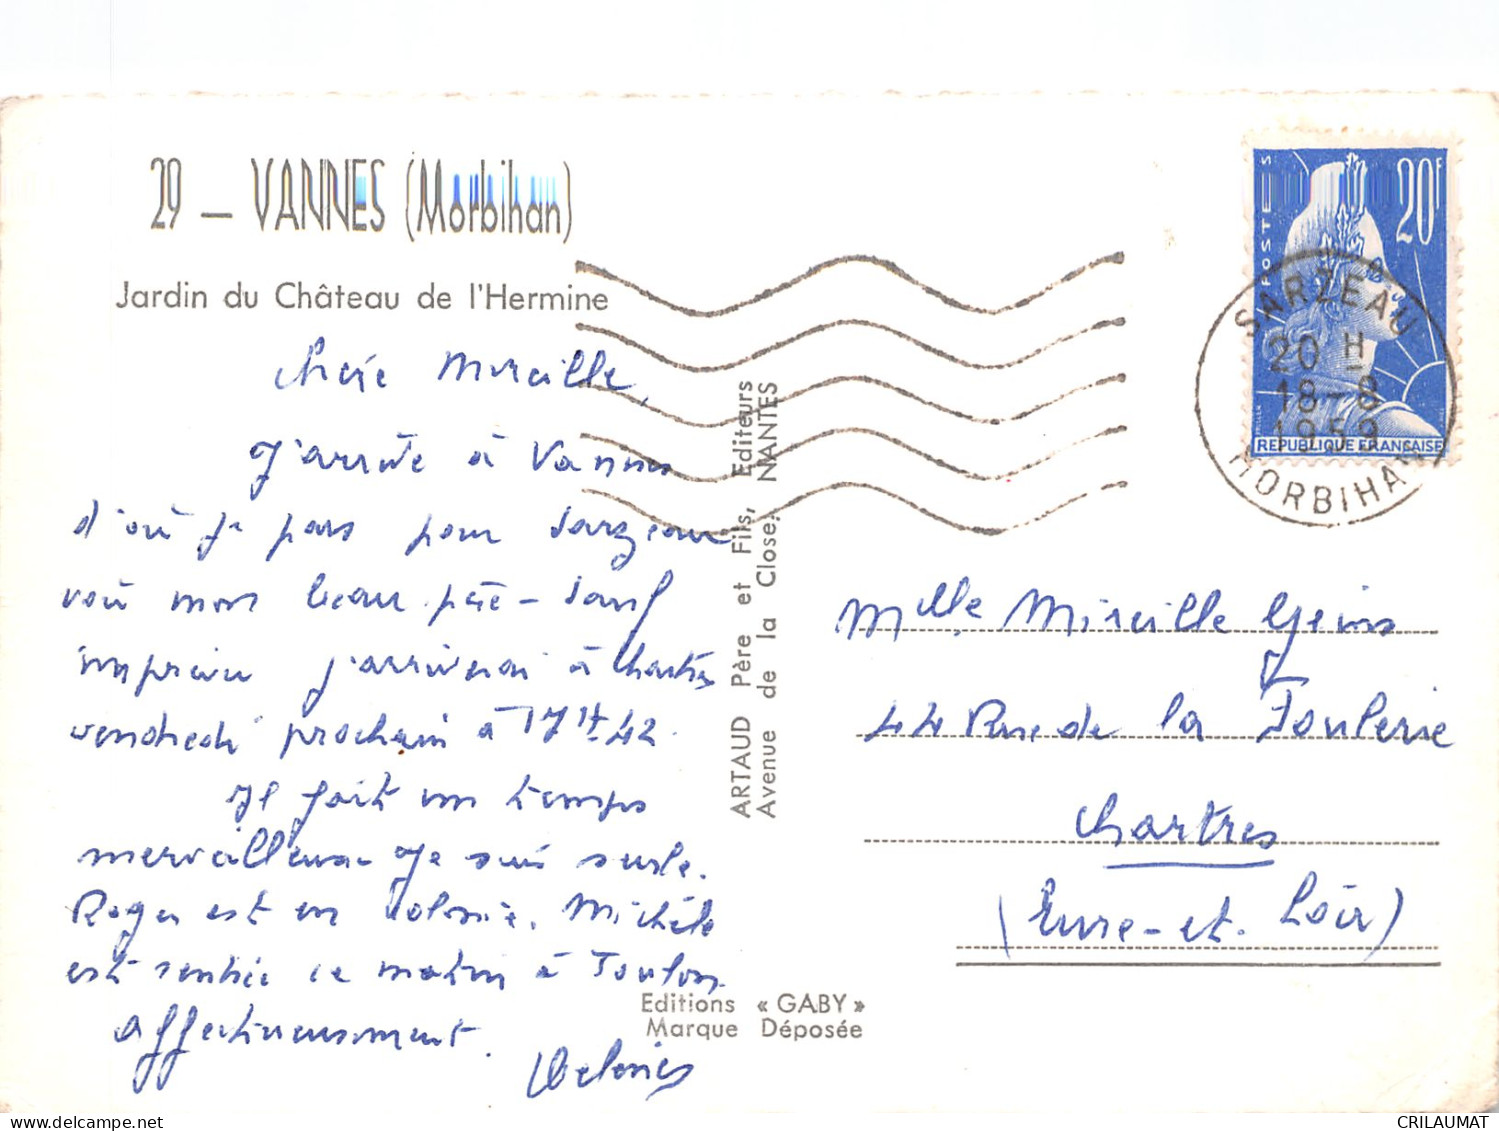 29 — VANNES (Morbihan)
Jardin du Château de l'Hermine
Chère Mireille,
J'arrive à Vannes
d'où je pars pour Sarzeau
voir mon beau-père - Sauf
imprévu j'arriverai à Chartres
vendredi prochain à 17H42.
Il fait un temps
merveilleux. Je suis seule.
Roger est en colonie. Michèle
est rentrée ce matin à Toulon.
affectueusement.
ARTAUD Père et Fils, Editeurs
Avenue de la Close, NANTES
Editions « GABY »
Marque Déposée
POSTES
20F
REPUBLIQUE FRANÇAISE
SARZEAU
20 H
18-8
1959
MORBIHAN
Mlle Mireille
44 Rue de la Foulerie
Chartres
(Eure-et-Loir)
CRILAUMAT